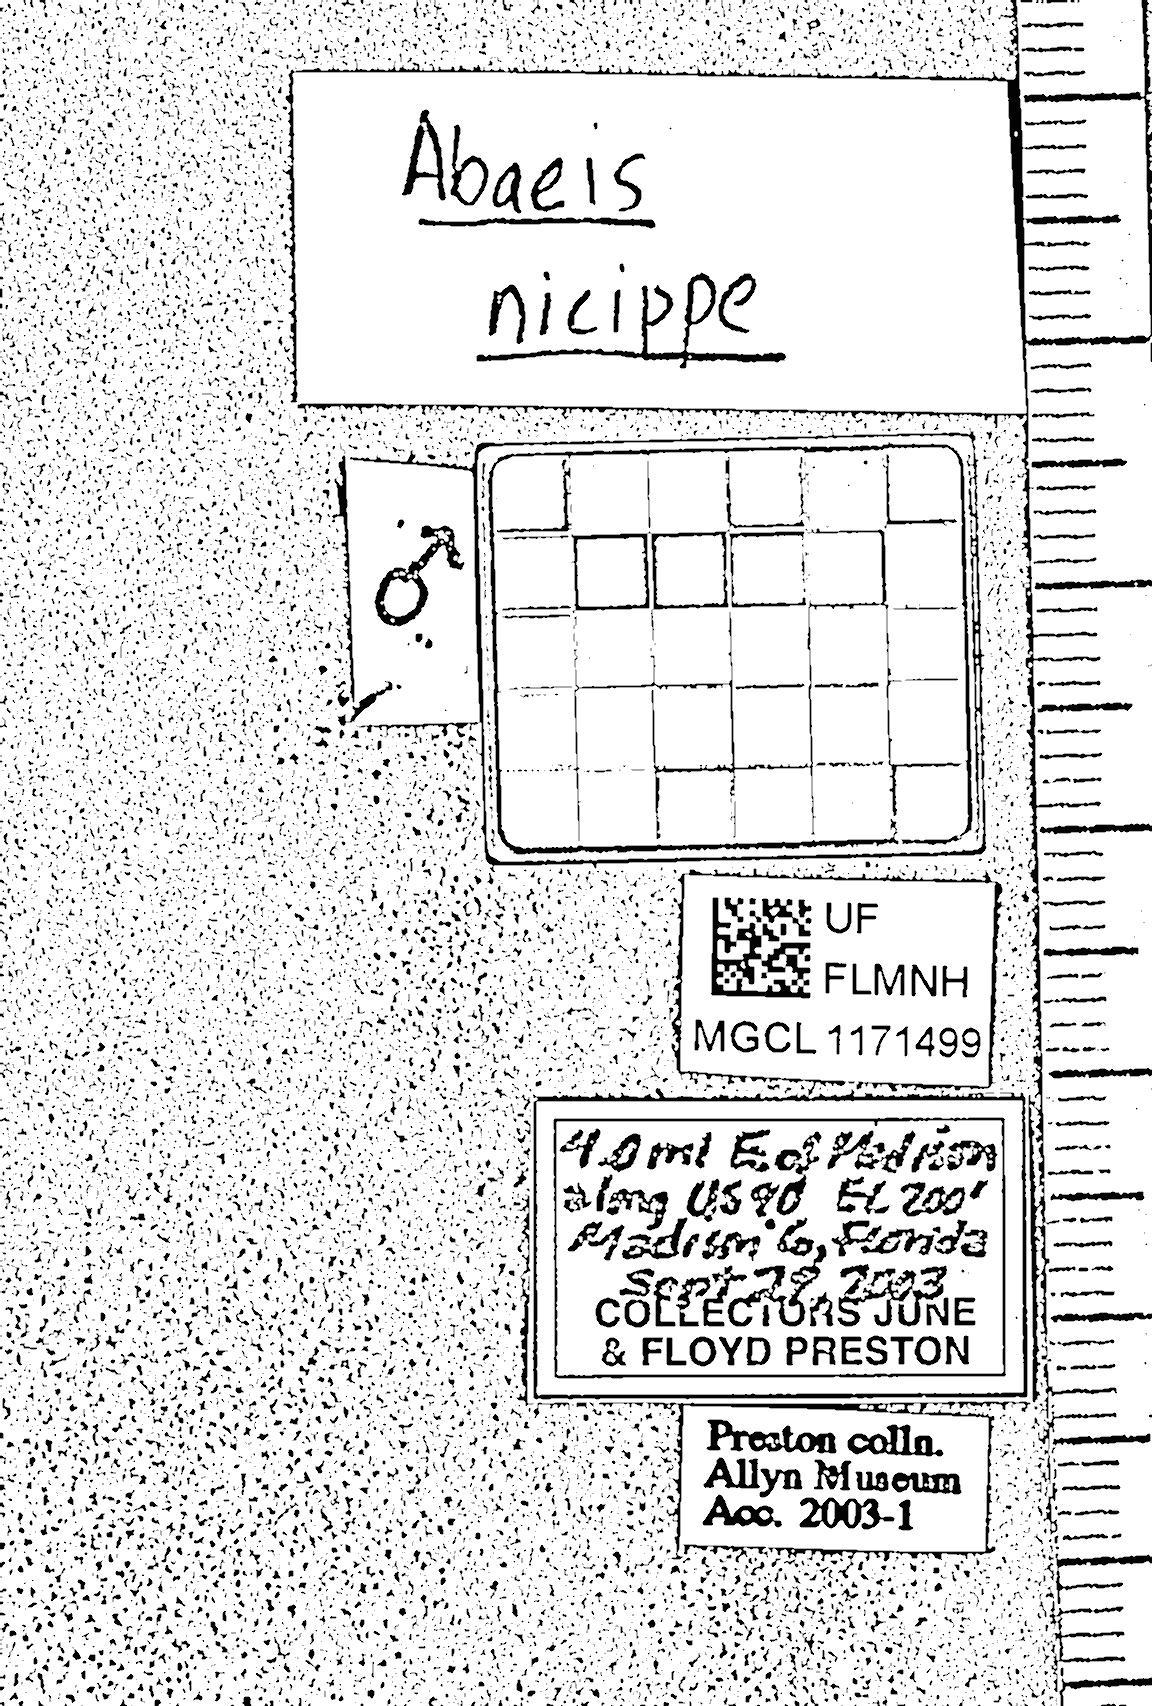 Abaeis
nicippe
♂
UF
FLMNH
MGCL 1171499
4.0 mi E. of Madison
along US 90 EL 200'
Madison Co, Florida
Sept 29, 2003
COLLECTORS JUNE
& FLOYD PRESTON
Preston colln.
Allyn Museum
Acc. 2003-1